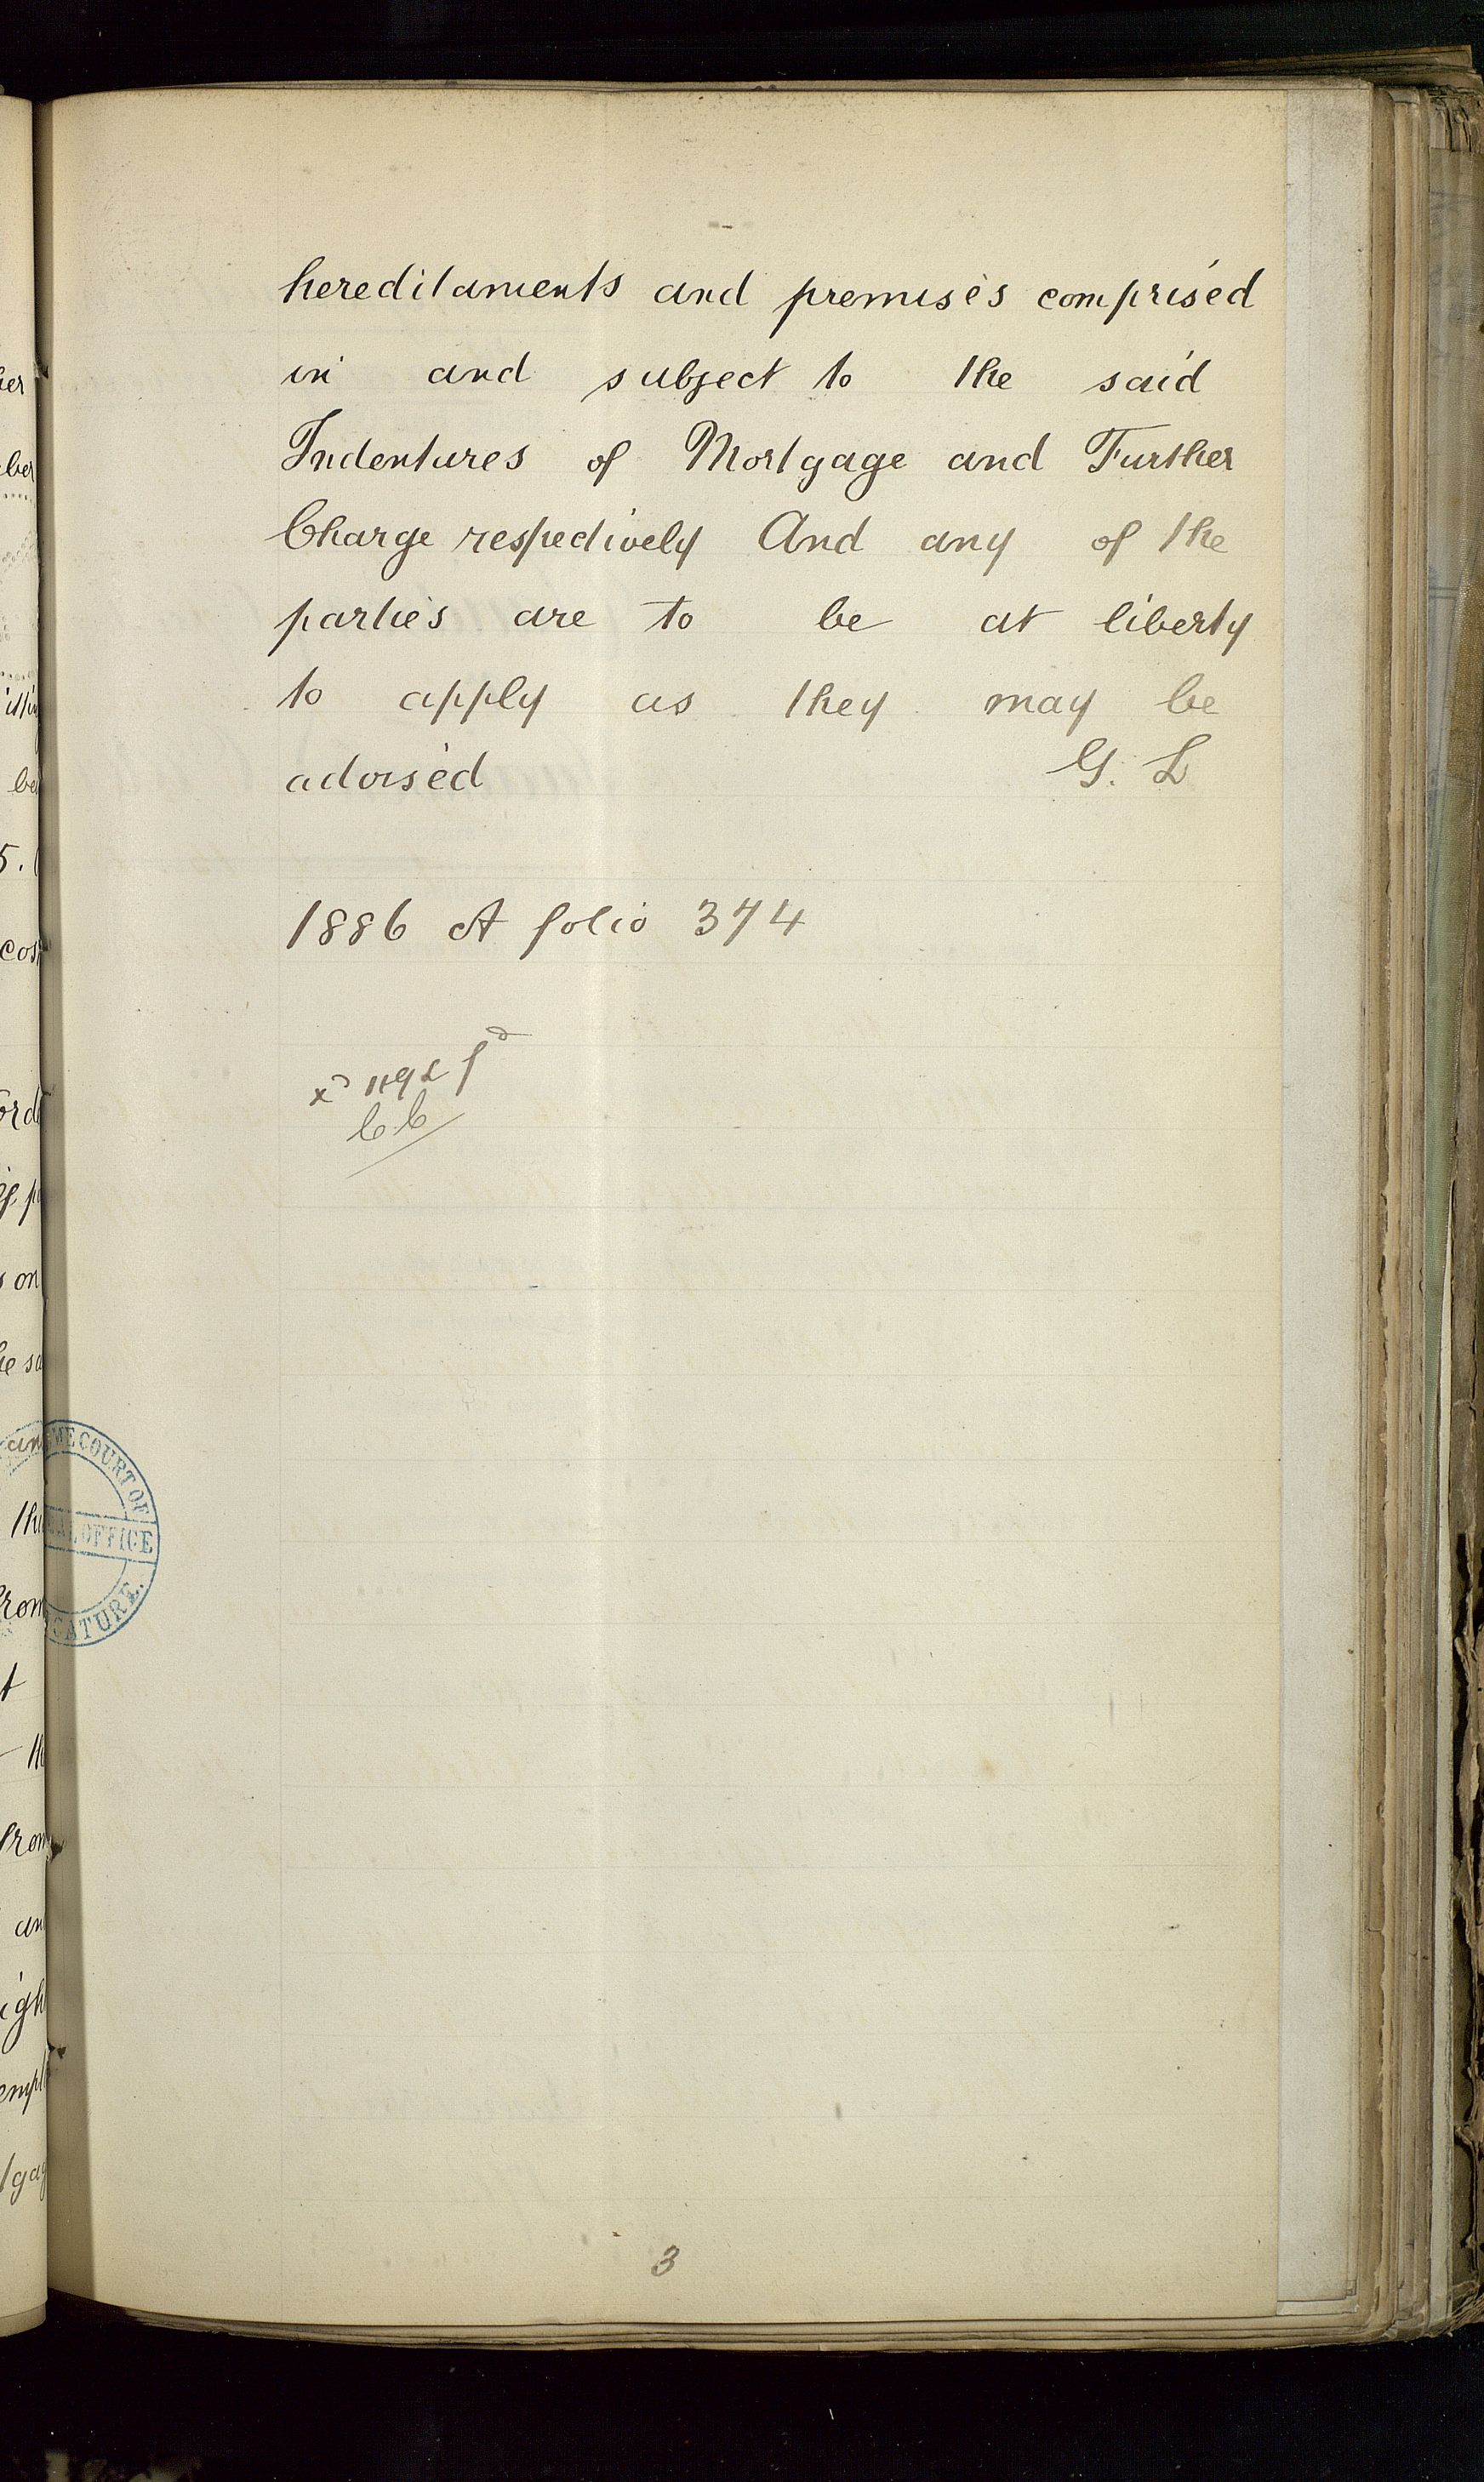 hereditaments and premises comprised
in and subject to the said
Indentures of Mortgage and Further
Charge respectively And any of the
parties are to be at liberty
to apply as they may be
advised G. L
1886 A folio 374
3
COURT OF
OFFICE